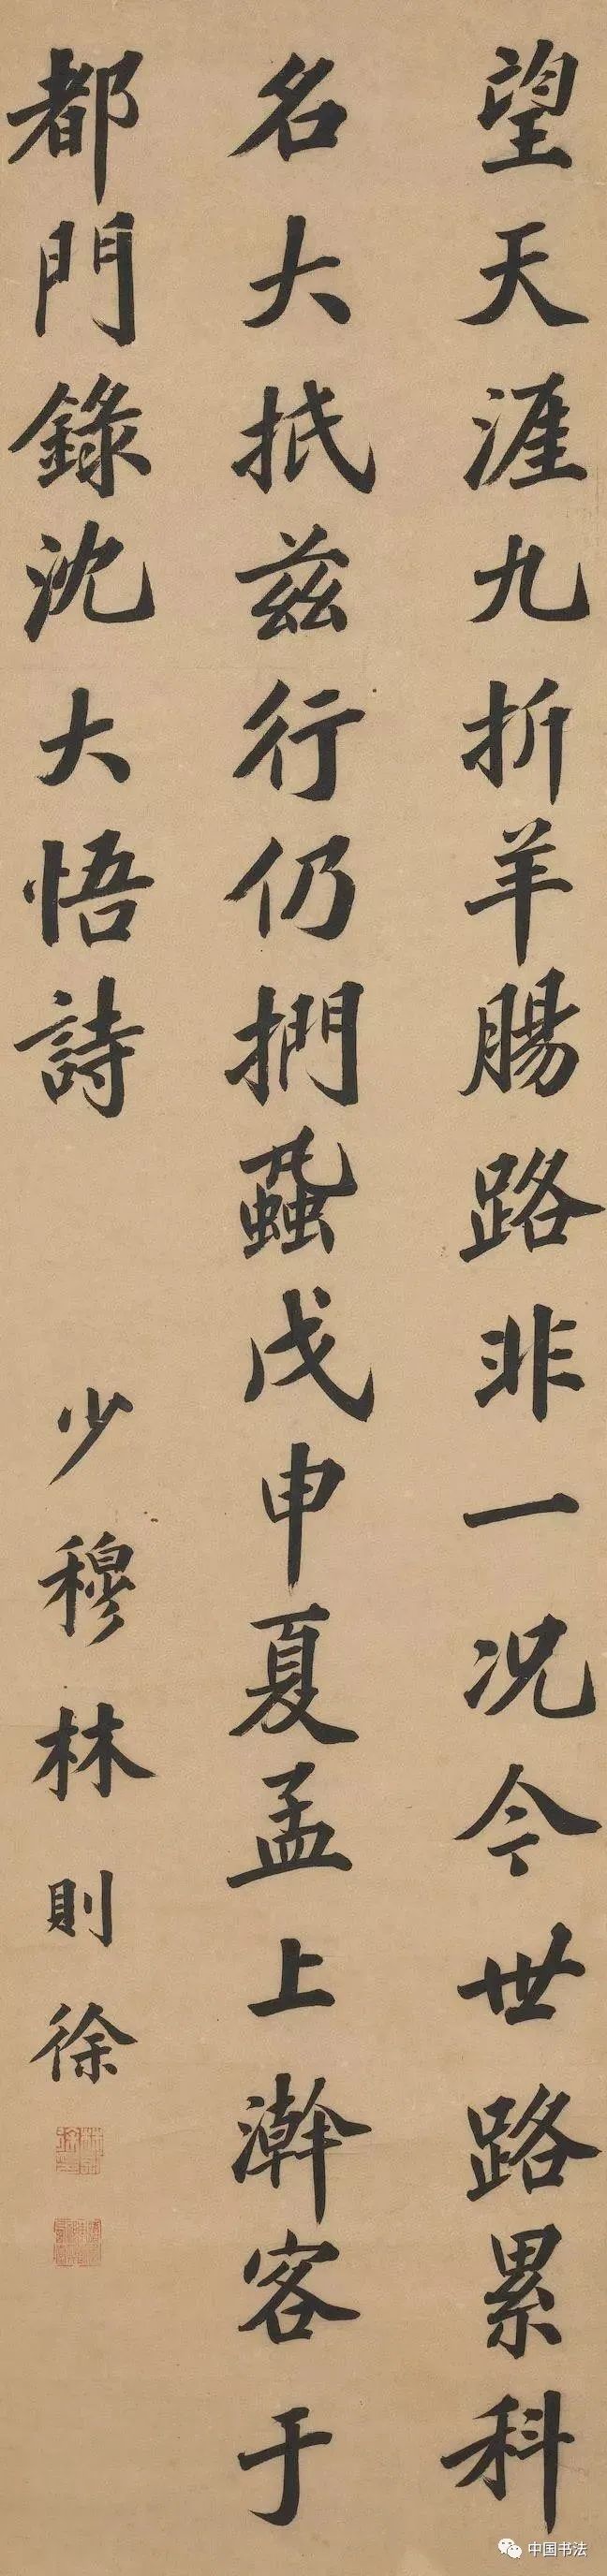 望天涯九折羊腸路非一况今世路累科
名大抵兹行仍捫蝨戊申夏孟上澣客于
都門錄沈大悟詩
少穆林則徐
中国书法